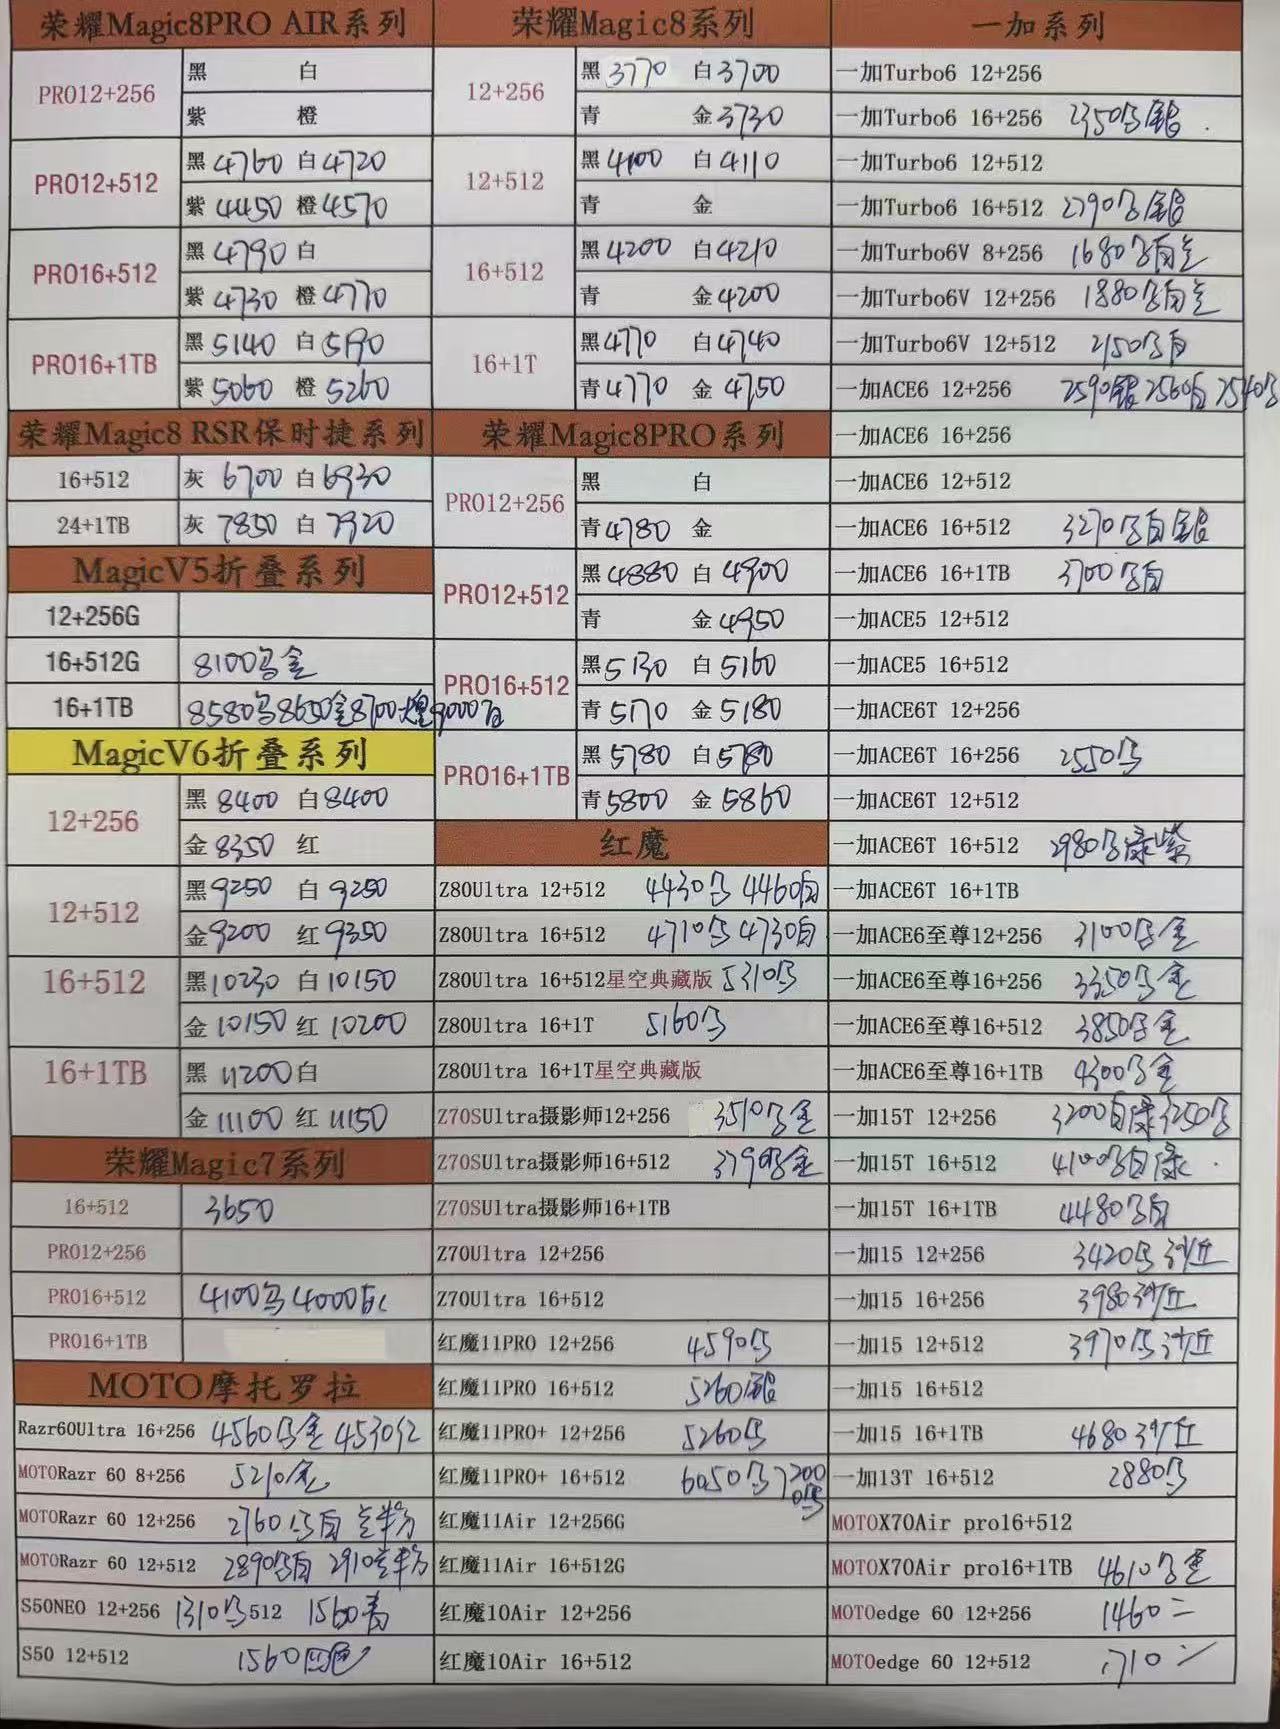 荣耀Magic8PRO AIR系列
PRO12+256 黑 白
紫 橙
PRO12+512 黑 4760 白 4720
紫 4450 橙 4570
PRO16+512 黑 4790 白
紫 4730 橙 4770
PRO16+1TB 黑 5140 白 5190
紫 5060 橙 5260
荣耀Magic8 RSR保时捷系列
16+512 灰 6700 白 6930
24+1TB 灰 7850 白 7920
MagicV5折叠系列
12+256G
16+512G 8100乌金
16+1TB 8580乌8650金8700 9000白
MagicV6折叠系列
12+256 黑 8400 白 8400
金 8350 红
12+512 黑 9250 白 9250
金 9200 红 9350
16+512 黑 10230 白 10150
金 10150 红 10200
16+1TB 黑 11200 白
金 11100 红 11150
荣耀Magic7系列
16+512 3650
PRO12+256
PRO16+512 4100乌 4000
PRO16+1TB
MOTO摩托罗拉
Razr60Ultra 16+256 4560乌金 4530红
MOTORazr 60 8+256 5210金
MOTORazr 60 12+256 2760乌白
MOTORazr 60 12+512 2890乌白 2910
S50NEO 12+256 1310乌512 1560青
S50 12+512 1560四色
荣耀Magic8系列
12+256 黑 3770 白 3700
青 金 3730
12+512 黑 4100 白 4110
青 金
16+512 黑 4200 白 4210
青 金 4200
16+1T 黑 4770 白 4740
青 4770 金 4750
荣耀Magic8PRO系列
PRO12+256 黑 白
青 4780 金
PRO12+512 黑 4880 白 4900
青 金 4950
PRO16+512 黑 5130 白 5160
青 5170 金 5180
PRO16+1TB 黑 5780 白 5780
青 5800 金 5860
红魔
Z80Ultra 12+512 4430乌 4460白
Z80Ultra 16+512 4710乌 4730白
Z80Ultra 16+512星空典藏版 5310乌
Z80Ultra 16+1T 5160乌
Z80Ultra 16+1T星空典藏版
Z70SUltra摄影师12+256 3510乌金
Z70SUltra摄影师16+512 3790乌金
Z70SUltra摄影师16+1TB
Z70Ultra 12+256
Z70Ultra 16+512
红魔11PRO 12+256 4590乌
红魔11PRO 16+512 5260银
红魔11PRO+ 12+256 5260乌
红魔11PRO+ 16+512 6050乌 7200
红魔11Air 12+256G
红魔11Air 16+512G
红魔10Air 12+256
红魔10Air 16+512
一加系列
一加Turbo6 12+256
一加Turbo6 16+256 2350乌银
一加Turbo6 12+512
一加Turbo6 16+512 2790乌银
一加Turbo6V 8+256 1680乌白兰
一加Turbo6V 12+256 1880乌白兰
一加Turbo6V 12+512 2150乌白
一加ACE6 12+256 2590银 2560白 2540乌
一加ACE6 16+256
一加ACE6 12+512
一加ACE6 16+512 3270乌白银
一加ACE6 16+1TB 3700乌白
一加ACE5 12+512
一加ACE5 16+512
一加ACE6T 12+256
一加ACE6T 16+256 2550乌
一加ACE6T 12+512
一加ACE6T 16+512 2980乌绿紫
一加ACE6T 16+1TB
一加ACE6至尊12+256 3100乌金
一加ACE6至尊16+256 3350乌金
一加ACE6至尊16+512 3850乌金
一加ACE6至尊16+1TB 4300乌金
一加15T 12+256 3200白绿3250乌
一加15T 16+512 4100乌白绿
一加15T 16+1TB 4480乌白
一加15 12+256 3420乌 沙丘
一加15 16+256 3980沙丘
一加15 12+512 3970乌 沙丘
一加15 16+512
一加15 16+1TB 4680沙丘
一加13T 16+512 2880乌
MOTOX70Air pro16+512
MOTOX70Air pro16+1TB 4610乌
MOTOedge 60 12+256 1460二
MOTOedge 60 12+512